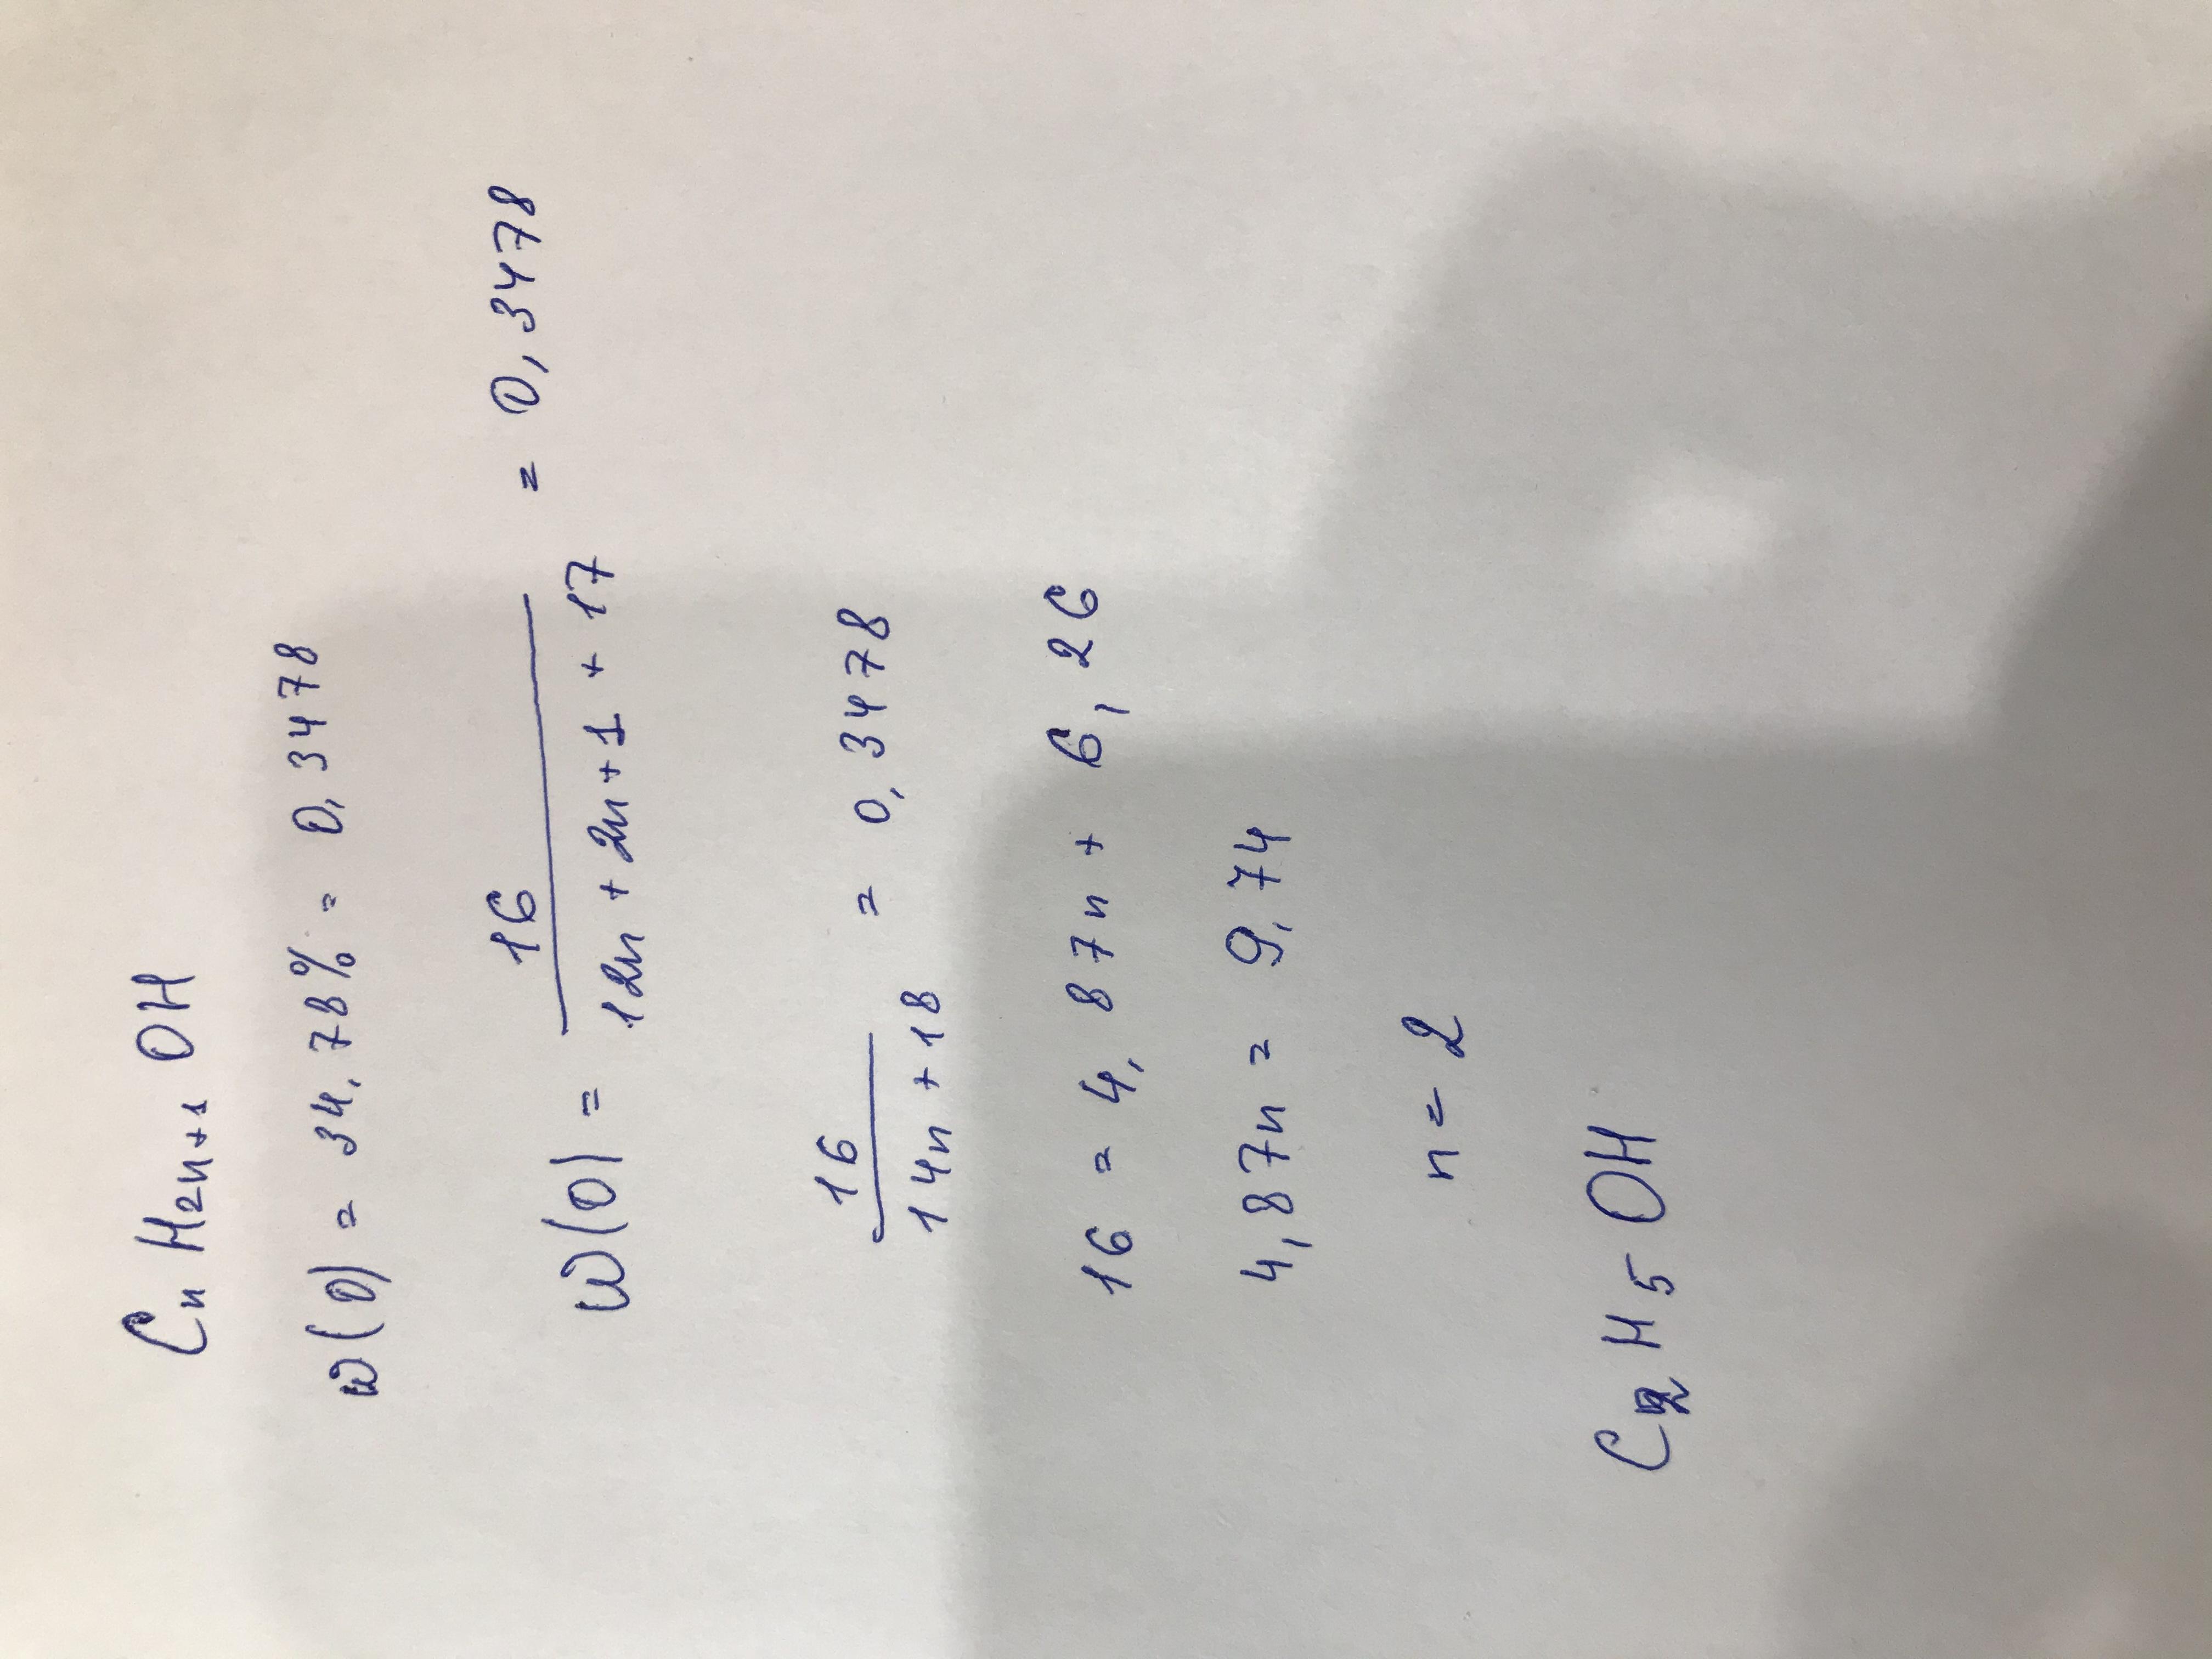 CnH2n+1OH
w(O) = 34,78% = 0,3478
w(O) = 16 / 12n + 2n+1 + 17 = 0,3478
16 / 14n + 18 = 0,3478
16 = 4,87n + 6,26
4,87n = 9,74
n = 2
C2H5OH